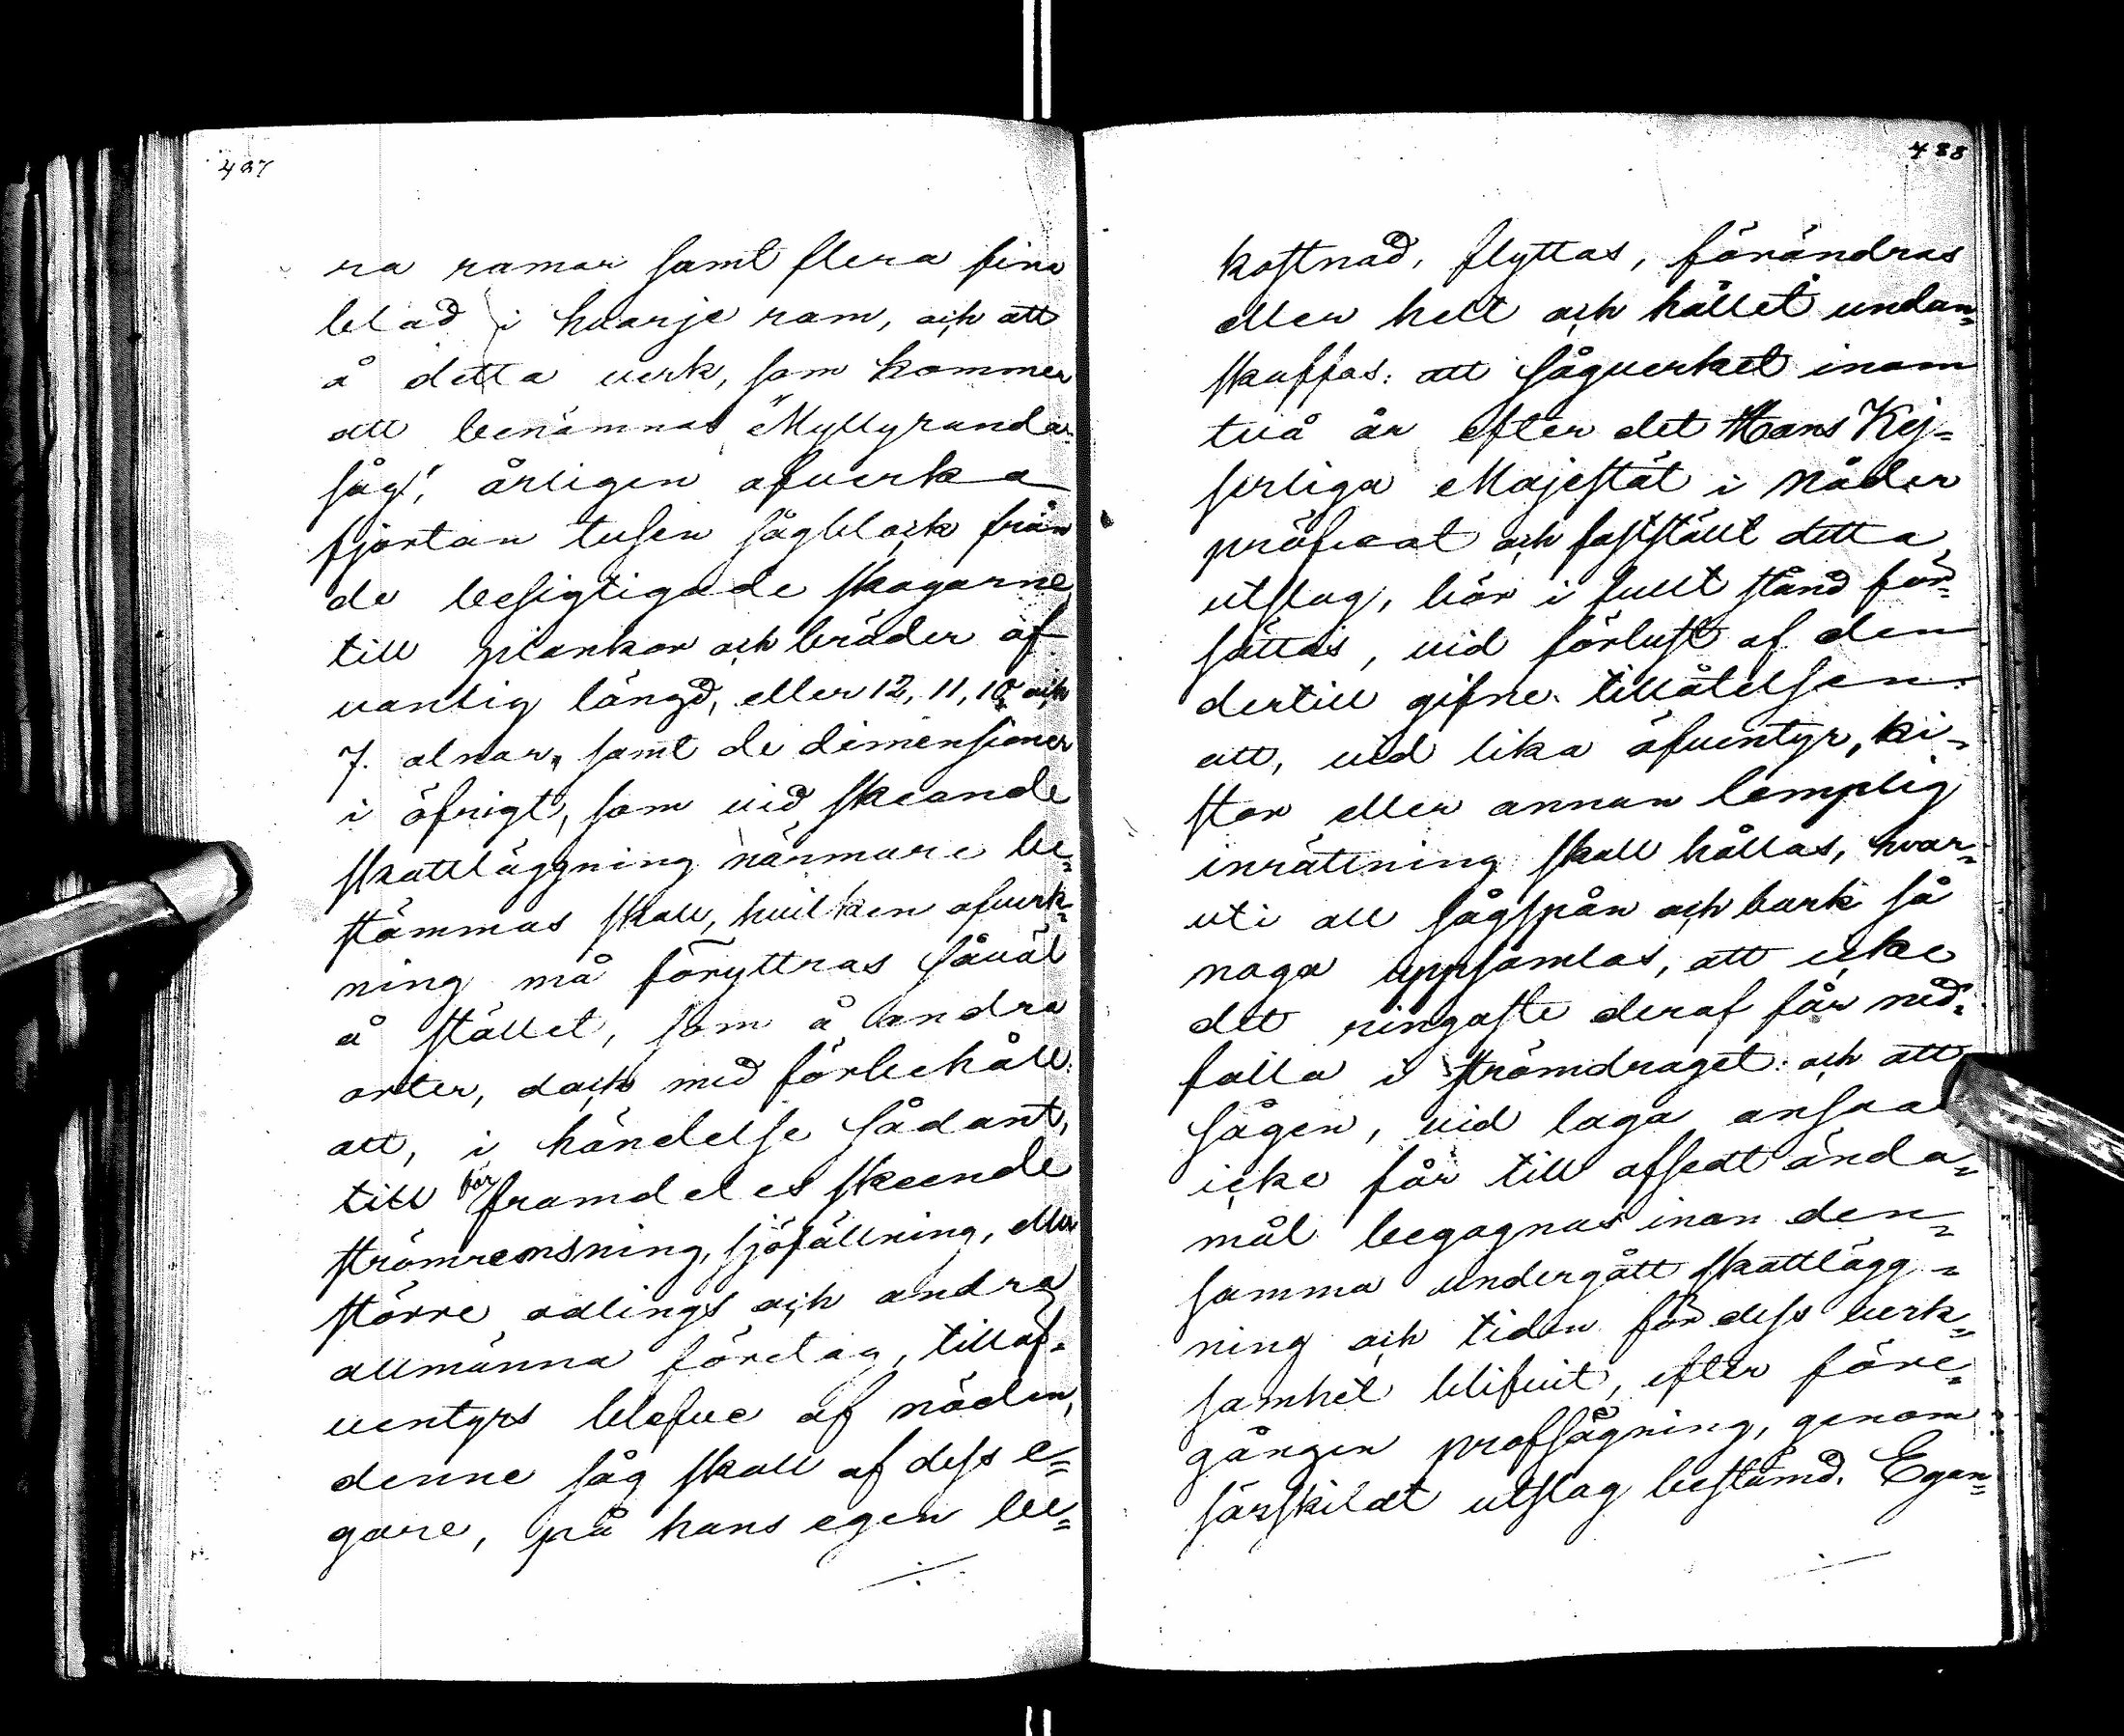 487
ra ramar samt flera fina
blad i hvarje ram, och att
å detta verk, som kommer
att benämnas "Myllyranda
såg", årligen afverka
fjortan tusen sågblock från
de besigtigade skogarne
till plankor och bräder af
vanlig längd, eller 12, 11, 10 och
7. alnar, samt de dimensioner
i öfrigt, som vid skeande
skattläggning närmare be=
stämmas skall, hvilken afverk=
ning må föryttras såväl
å stället, som å andra
orter, doch med förbehåll:
att, i händelse sådant,
till för framdeles skeende
strömrensning, sjöfällning, eller
större odlings och andra
allmänna företag, tilläf=
ventyrs blefve af nöden,
denne såg skall af dess e=
gare, på hans egen be=
488
kostnad, flyttas, förändras
eller helt och hållet undan=
skaffas: att sågverket inom
två år efter det Hans Kej=
serliga Majestät i Nåder
pröfvat och fastställt detta
utslag, bör i fullt stånd för=
sättas, vid förlust af den
dertill gifne tillåtelsen:
att, vid lika äfventyr, ki=
stor eller annan lemplig
inrättning skall hållas, hvar=
uti all sågspån och bark så
noga uppsamlas, att icke
det ringaste deraf får ned=
falla i strömdraget: och att
sågen, vid laga ansvar
icke får till afsedt ända=
mål begagnas innan den=
samma undergått skattlägg=
ning och tiden för dess verk=
samhet blifvit, efter före=
gången profsågning, genom
särskildt utslag bestämd. Egen=